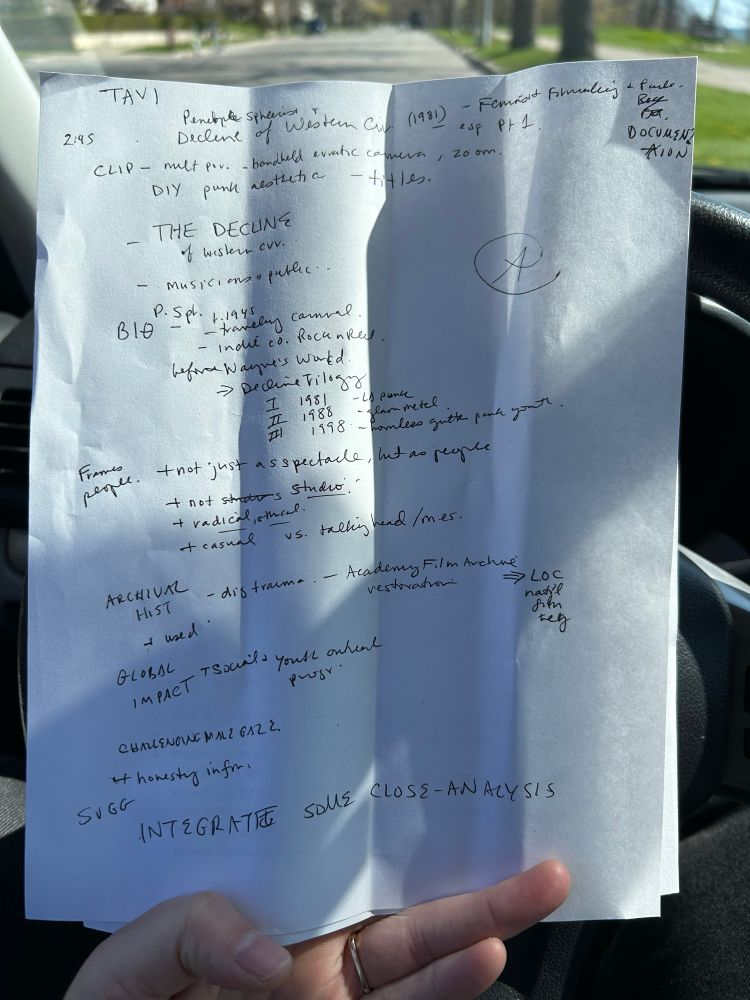 TAVI
2:45
Penelope Spheeris +
Decline of Western Civ (1981) - Feminist Filmmaking + Punk.
esp Pt 1.
DOCUMENT
ATION
CLIP - mult pov. - handheld erratic camera, zoom.
DIY punk aesthetic - titles.
- THE DECLINE
of western civ.
- musicians + public..
A
P. Sph. 1945
BIO - - traveling carnival.
- indie co. Rock n Reel.
before Wayne's World.
⇒ Decline Trilogy
I 1981 - LA punk
II 1988 - glam metal
III 1998 - homeless gutter punk youth.
Frames
people.
+ not just as spectacle, but as people
+ not studio.
+ radical, ethical.
+ casual vs. talking head
ARCHIVAL
HIST
+ used
- Academy Film Archive
restoration
⇒ LOC
nat'l
film
reg
GLOBAL
IMPACT
+ Social + youth
CHALLENGING MALE GAZE.
+ honesty
SUGG
INTEGRATE SOME CLOSE-ANALYSIS